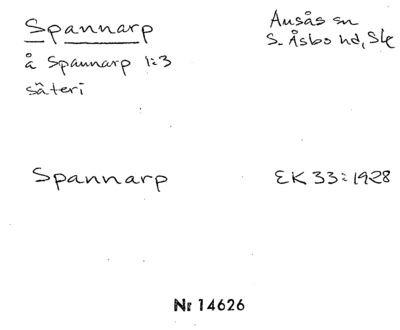 Spannarp
Ausås sn
S. Åsbo hd, Ske
å Spannarp 1:3
säteri
Spannarp
EK 33:1928
Nr 14626